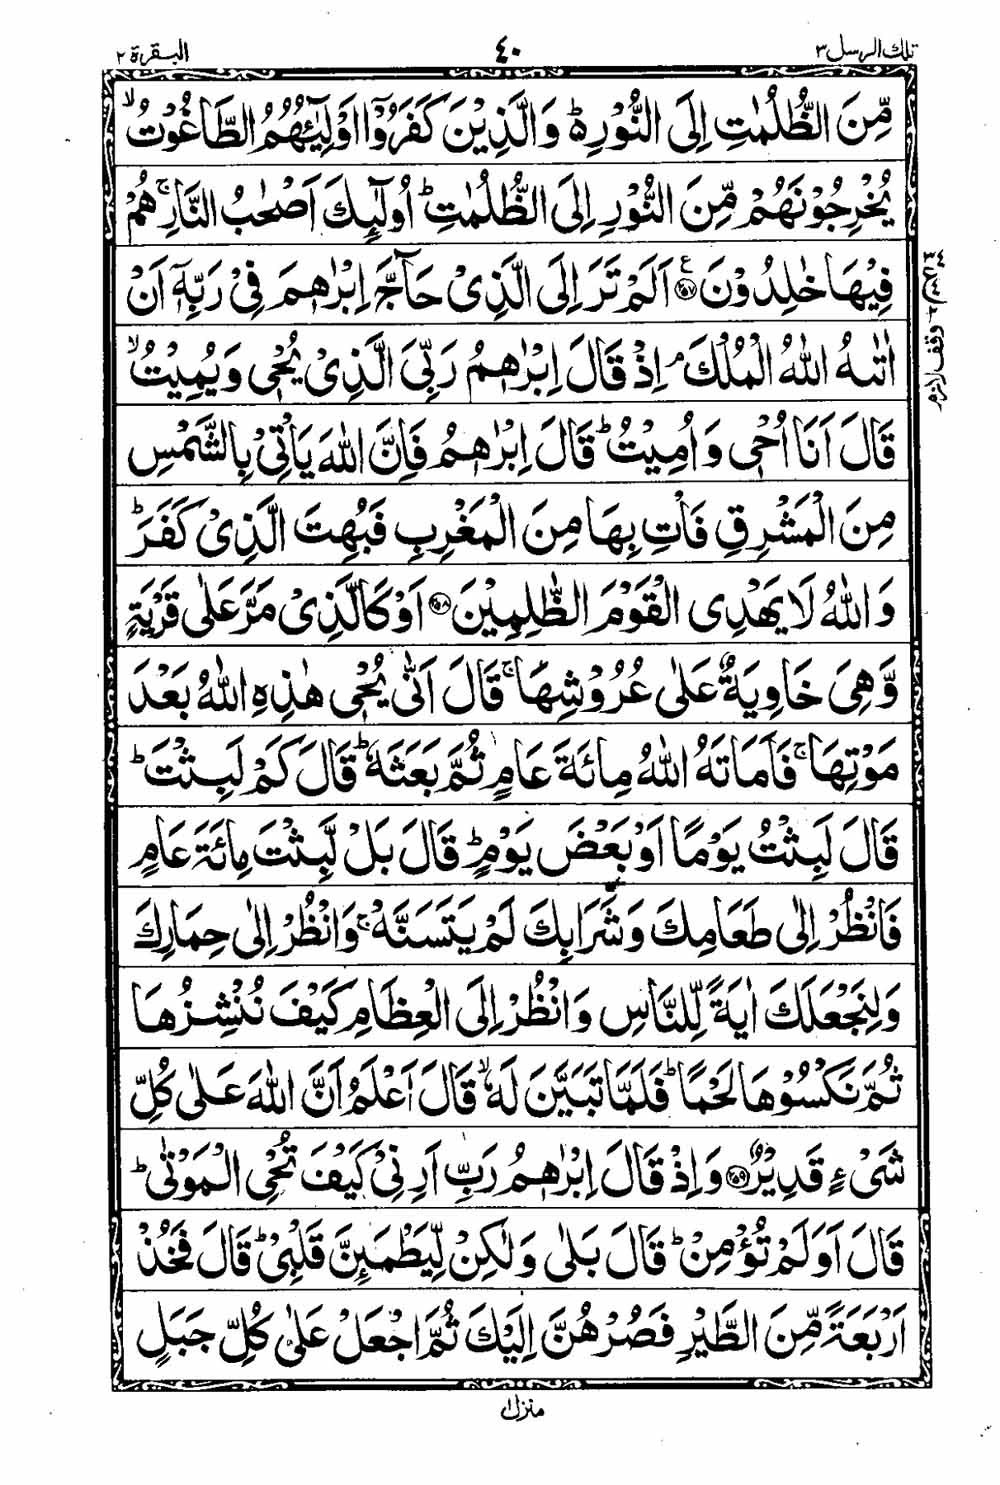 تلك الرسل ٣ ٤٠ البقرة ٢
مِّنَ الظُّلُمٰتِ اِلَى النُّوْرِ۬ؕ وَالَّذِيْنَ كَفَرُوْۤا اَوْلِيٰٓـُٔهُمُ الطَّاغُوْتُ ۙ
يُخْرِجُوْنَهُمْ مِّنَ النُّوْرِ اِلَى الظُّلُمٰتِ ؕ اُولٰٓئِكَ اَصْحٰبُ النَّارِ ۚ هُمْ
فِيْهَا خٰلِدُوْنَ ﴿۲۵۷﴾ ع اَلَمْ تَرَ اِلَى الَّذِىْ حَآجَّ اِبْرٰهٖمَ فِىْ رَبِّهٖۤ اَنْ
اٰتٰىهُ اللّٰهُ الْمُلْكَ ۘ اِذْ قَالَ اِبْرٰهٖمُ رَبِّىَ الَّذِىْ يُحْىٖ وَيُمِيْتُ ۙ
قَالَ اَنَا اُحْىٖ وَاُمِيْتُ ؕ قَالَ اِبْرٰهٖمُ فَاِنَّ اللّٰهَ يَاْتِىْ بِالشَّمْسِ
مِنَ الْمَشْرِقِ فَاْتِ بِهَا مِنَ الْمَغْرِبِ فَبُهِتَ الَّذِىْ كَفَرَ ؕ
وَاللّٰهُ لَا يَهْدِى الْقَوْمَ الظّٰلِمِيْنَ ﴿۲۵۸﴾ اَوْ كَالَّذِىْ مَرَّ عَلٰى قَرْيَةٍ
وَّهِىَ خَاوِيَةٌ عَلٰى عُرُوْشِهَا ۚ قَالَ اَنّٰى يُحْىٖ هٰذِهِ اللّٰهُ بَعْدَ
مَوْتِهَا ۚ فَاَمَاتَهُ اللّٰهُ مِائَةَ عَامٍ ثُمَّ بَعَثَهٗ ؕ قَالَ كَمْ لَبِثْتَ ؕ
قَالَ لَبِثْتُ يَوْمًا اَوْ بَعْضَ يَوْمٍ ؕ قَالَ بَلْ لَّبِثْتَ مِائَةَ عَامٍ
فَانْظُرْ اِلٰى طَعَامِكَ وَشَرَابِكَ لَمْ يَتَسَنَّهْ ۚ وَانْظُرْ اِلٰى حِمَارِكَ
وَلِنَجْعَلَكَ اٰيَةً لِّلنَّاسِ وَانْظُرْ اِلَى الْعِظَامِ كَيْفَ نُنْشِزُهَا
ثُمَّ نَكْسُوْهَا لَحْمًا ؕ فَلَمَّا تَبَيَّنَ لَهٗ ۙ قَالَ اَعْلَمُ اَنَّ اللّٰهَ عَلٰى كُلِّ
شَىْءٍ قَدِيْرٌ ﴿۲۵۹﴾ وَاِذْ قَالَ اِبْرٰهٖمُ رَبِّ اَرِنِىْ كَيْفَ تُحْىِ الْمَوْتٰى ؕ
قَالَ اَوَلَمْ تُؤْمِنْ ؕ قَالَ بَلٰى وَلٰكِنْ لِّيَطْمَئِنَّ قَلْبِىْ ؕ قَالَ فَخُذْ
اَرْبَعَةً مِّنَ الطَّيْرِ فَصُرْهُنَّ اِلَيْكَ ثُمَّ اجْعَلْ عَلٰى كُلِّ جَبَلٍ
وقف لازم
منزل